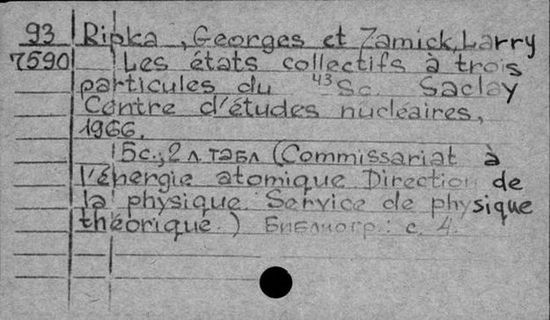 93 Ripka, Georges et Zamick, Larry
7590 Les états collectifs à trois
particules du ⁴³Sc. Saclay
Centre d'études nucléaires,
1966.
15с.; 2 л. табл (Commissariat à
l'énergie atomique Direction de
la physique Service de physique
théorique.) Библиогр.: с. 4.